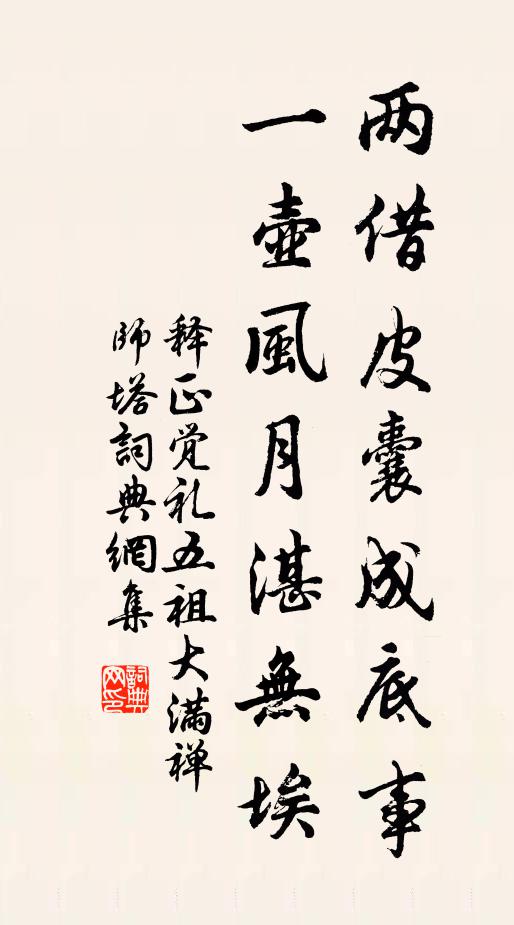 两借皮囊成底事
一壺風月湛無埃
释正觉礼五祖大满禅
師塔詞典網集
詞典网印